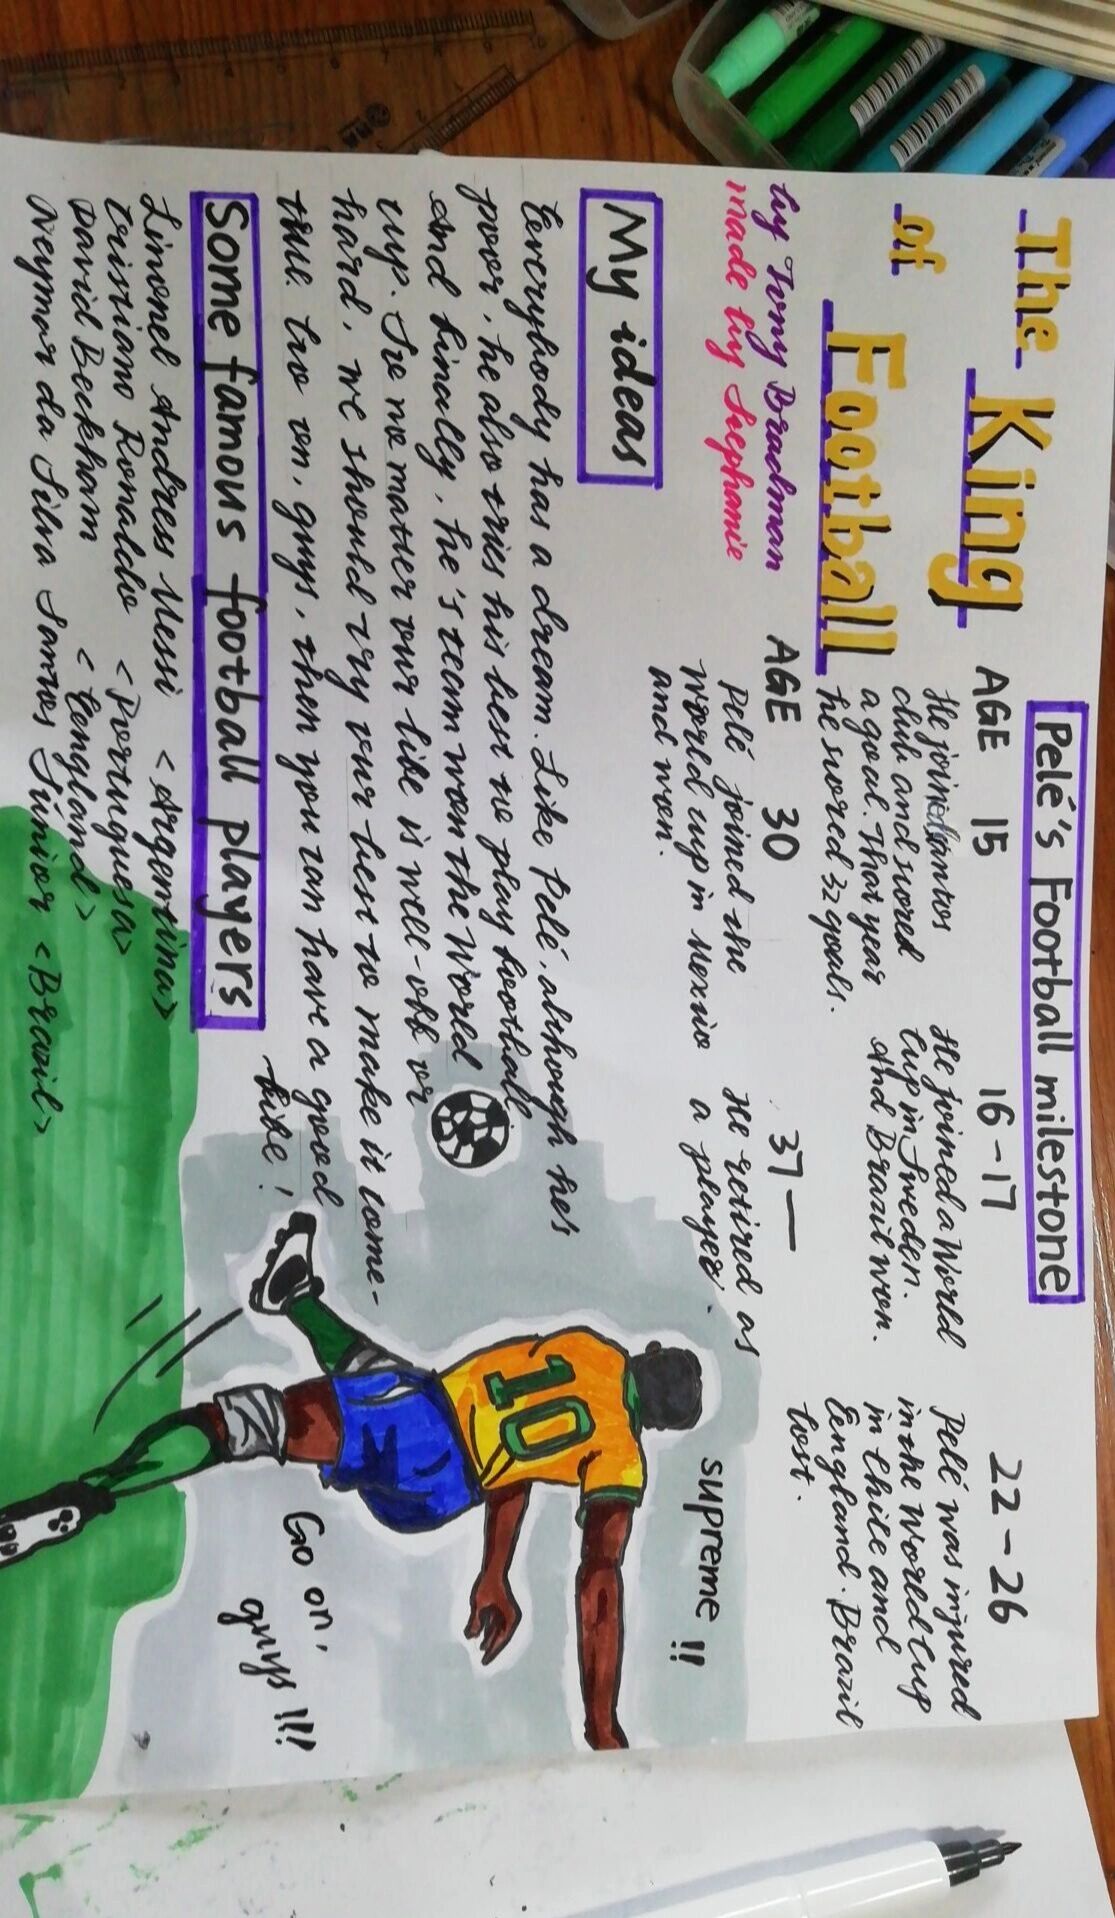 The King
of Football
by Tony Bradman
made by Stephanie
Pelé's Football milestone
AGE 15
He joined Santos
club and scored
a goal. That year
he scored 32 goals.
16-17
He joined a World
Cup in Sweden.
And Brazil won.
22-26
Pelé was injured
in the World Cup
in Chile and
England. Brazil
lost.
AGE 30
Pelé joined the
World cup in Mexico
and won.
37—
He retired as
a player.
My ideas
Everybody has a dream. Like Pelé, although he's
poor, he also tries his best to play football
And finally, he's team won the World
cup. So no mater our life is well-off or
hard, we should try our best to make it come-
true. Go on, guys, then you can have a good
life!
supreme !!
Go on,
guys!!!
Some famous football players
Limonel Andres Messi <Argentina>
Cristiano Ronaldo <Portuguesa>
David Beckham <England>
Neymar da Silva Santos Júnior <Brazil>
10